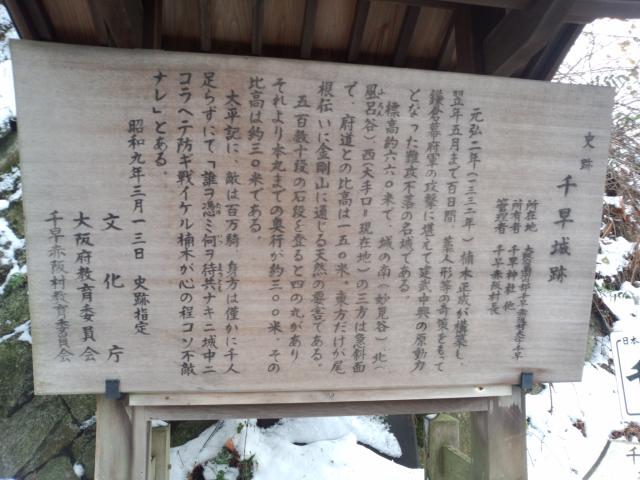 史跡 千早城跡
所在地 大阪府南河内郡千早赤阪村大字千早
所有者 千早神社 他
管理者 千早赤阪村長
元弘二年(一三三二年)楠木正成が構築し、
翌年五月まで百日間、藁人形等の奇策をもって
鎌倉幕府軍の攻撃に堪えて建武中興の原動力
となった難攻不落の名城である。
標高約六六〇米で、城の南(妙見谷)北(
風呂谷)西(大手口=現在地)の三方は急斜面
で、府道との比高は一五〇米。東方だけが尾
根伝いに金剛山に通じる天然の要害である。
五百数十段の石段を登ると四の丸があり
それより本丸までの奥行が約三〇〇米、その
比高は約三〇米である。
太平記に、敵は百万騎、身方は僅かに千人
足らずにて「誰ヲ憑ミ何ヲ待共ナキニ城中ニ
コラヘテ防ギ戦イケル楠木が心の程コソ不敵
ナレ」とある。
昭和九年三月一三日 史跡指定
文化庁
大阪府教育委員会
千早赤阪村教育委員会
日本
千